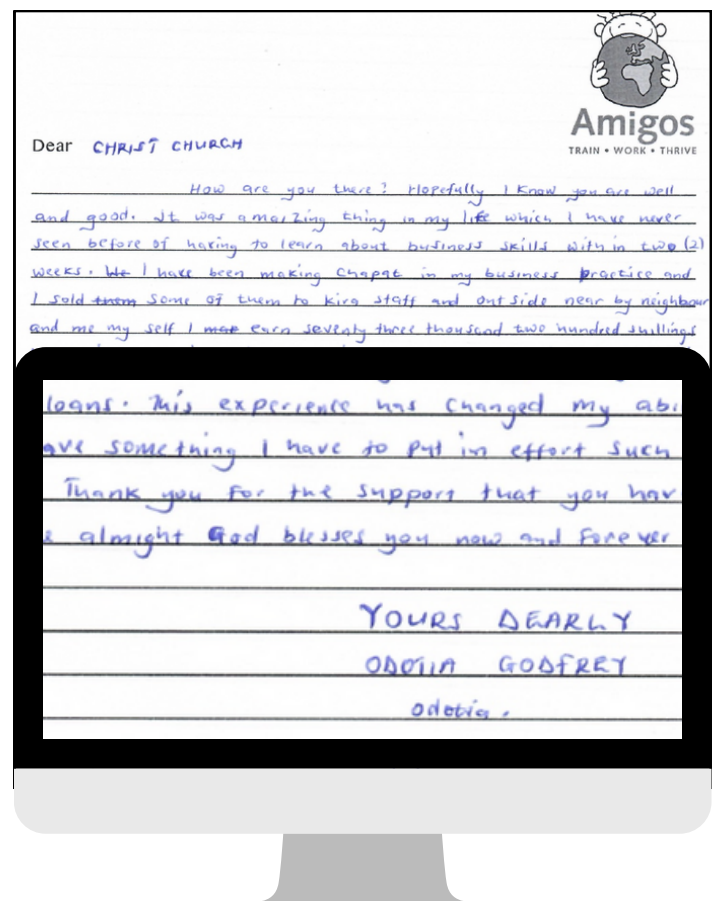 Amigos
TRAIN • WORK • THRIVE
Dear CHRIST CHURCH
How are you there? Hopefully I Know you are well
and good. It was amaizing thing in my life which I have never
seen before of having to learn about business skills with in two (2)
weeks. We I have been making chapat in my business practice and
I sold them some of them to kira staff and out side near by neighbour
and me my self I mae earn seventy three thousand two hundred shillings
loans. This experience has changed my abi
ave something I have to put in effort such
Thank you For the support that you hav
e almight God blesses you now and Forever
YOURS DEARLY
ODOTIA GODFREY
odotia.